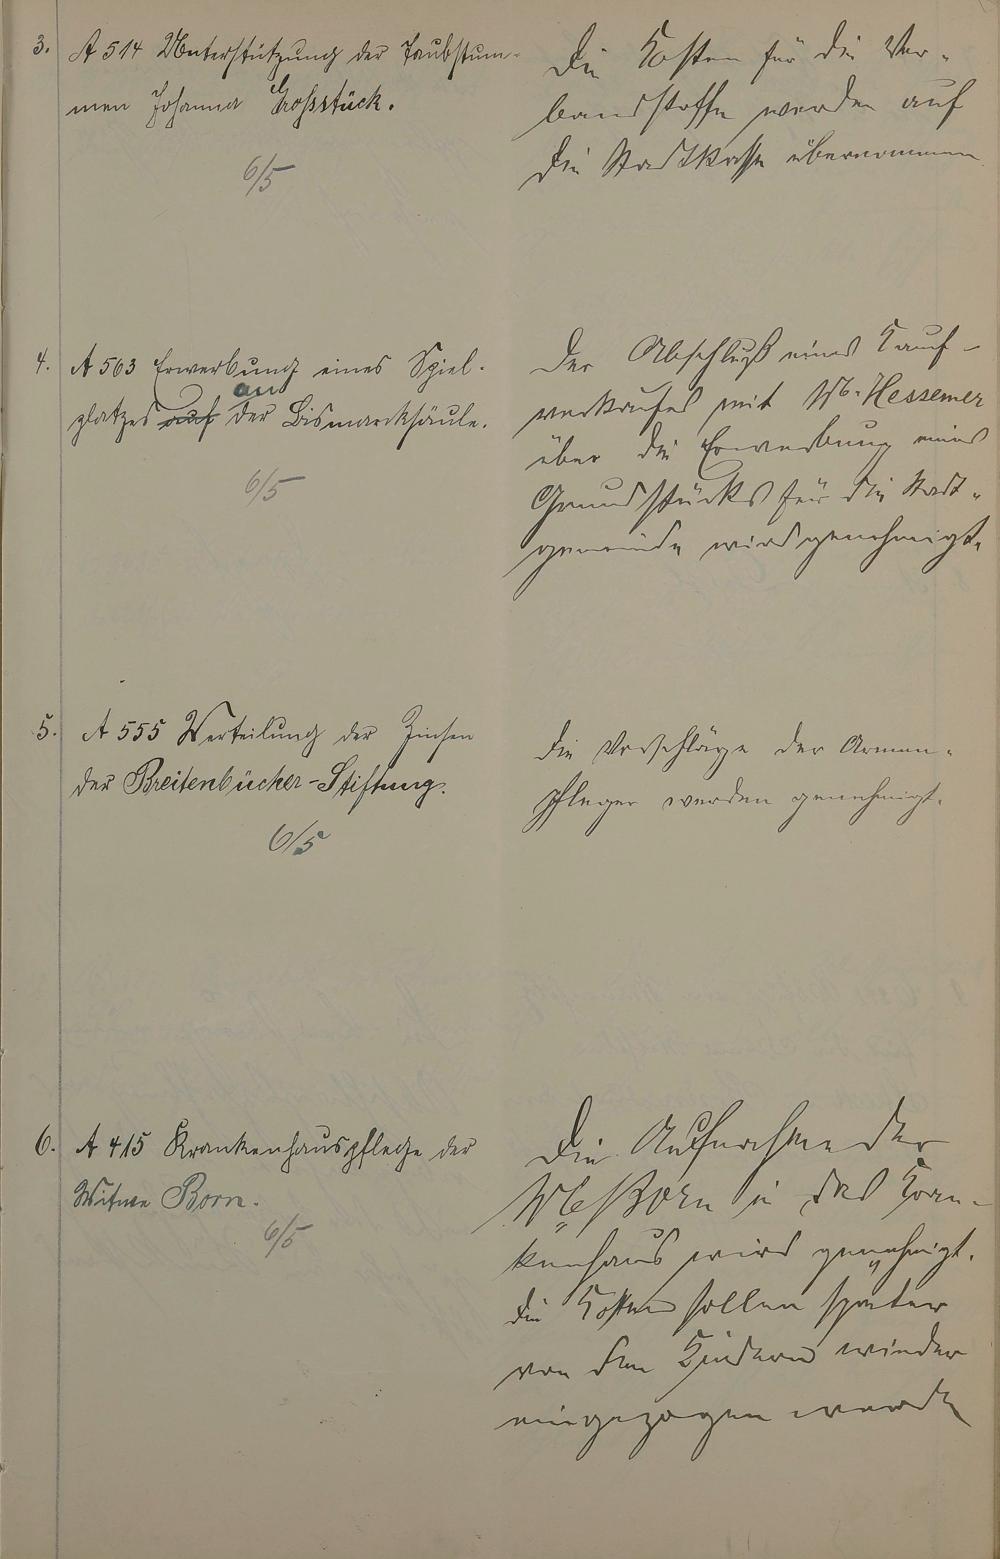 3. A 514 Unterstützung der Taubstum-
men Johanna Grossstück.
6/5
Die Kosten für die Ver-
bandstoffe werden auf
die Stadtkasse übernommen
4. A 563 Erwerbung eines Spiel-
an
platzes auf der Bismarcksäule.
6/5
Der Abschluß eines Kauf-
vertrages mit Hessemer
über die Erwerbung eines
Grundstücks für die Stadt-
gemeinde wird genehmigt.
5. A 555 Verteilung der Zinsen
der Breitenbücher-Stiftung.
6/5
Die Vorschläge der Armen-
pfleger werden genehmigt.
6. A 415 Krankenhauspflege der
Witwe Born.
6/5
Die Aufnahme der
Born in das Kran-
kenhaus wird genehmigt.
Die Kosten sollen später
von den Kindern wieder
eingezogen werden